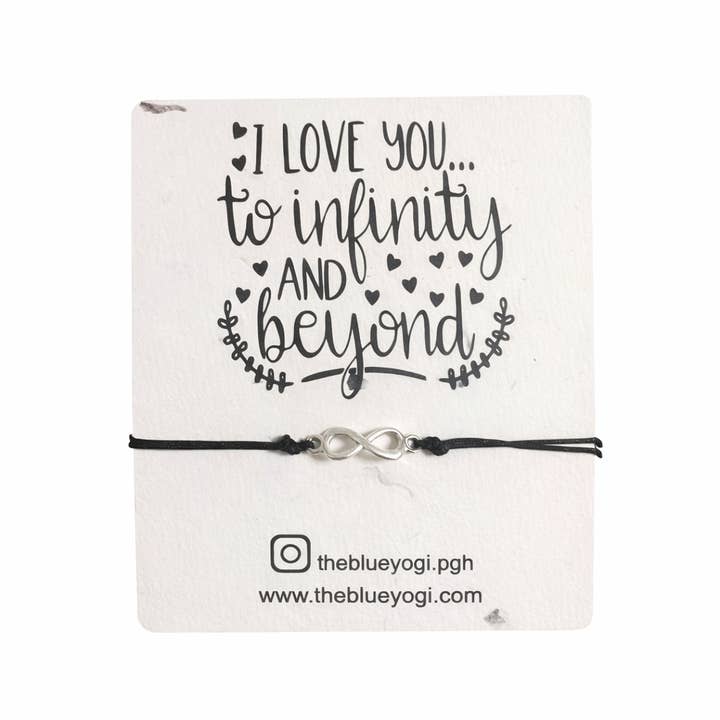 I LOVE YOU...
to infinity
AND
beyond
theblueyogi.pgh
www.theblueyogi.com